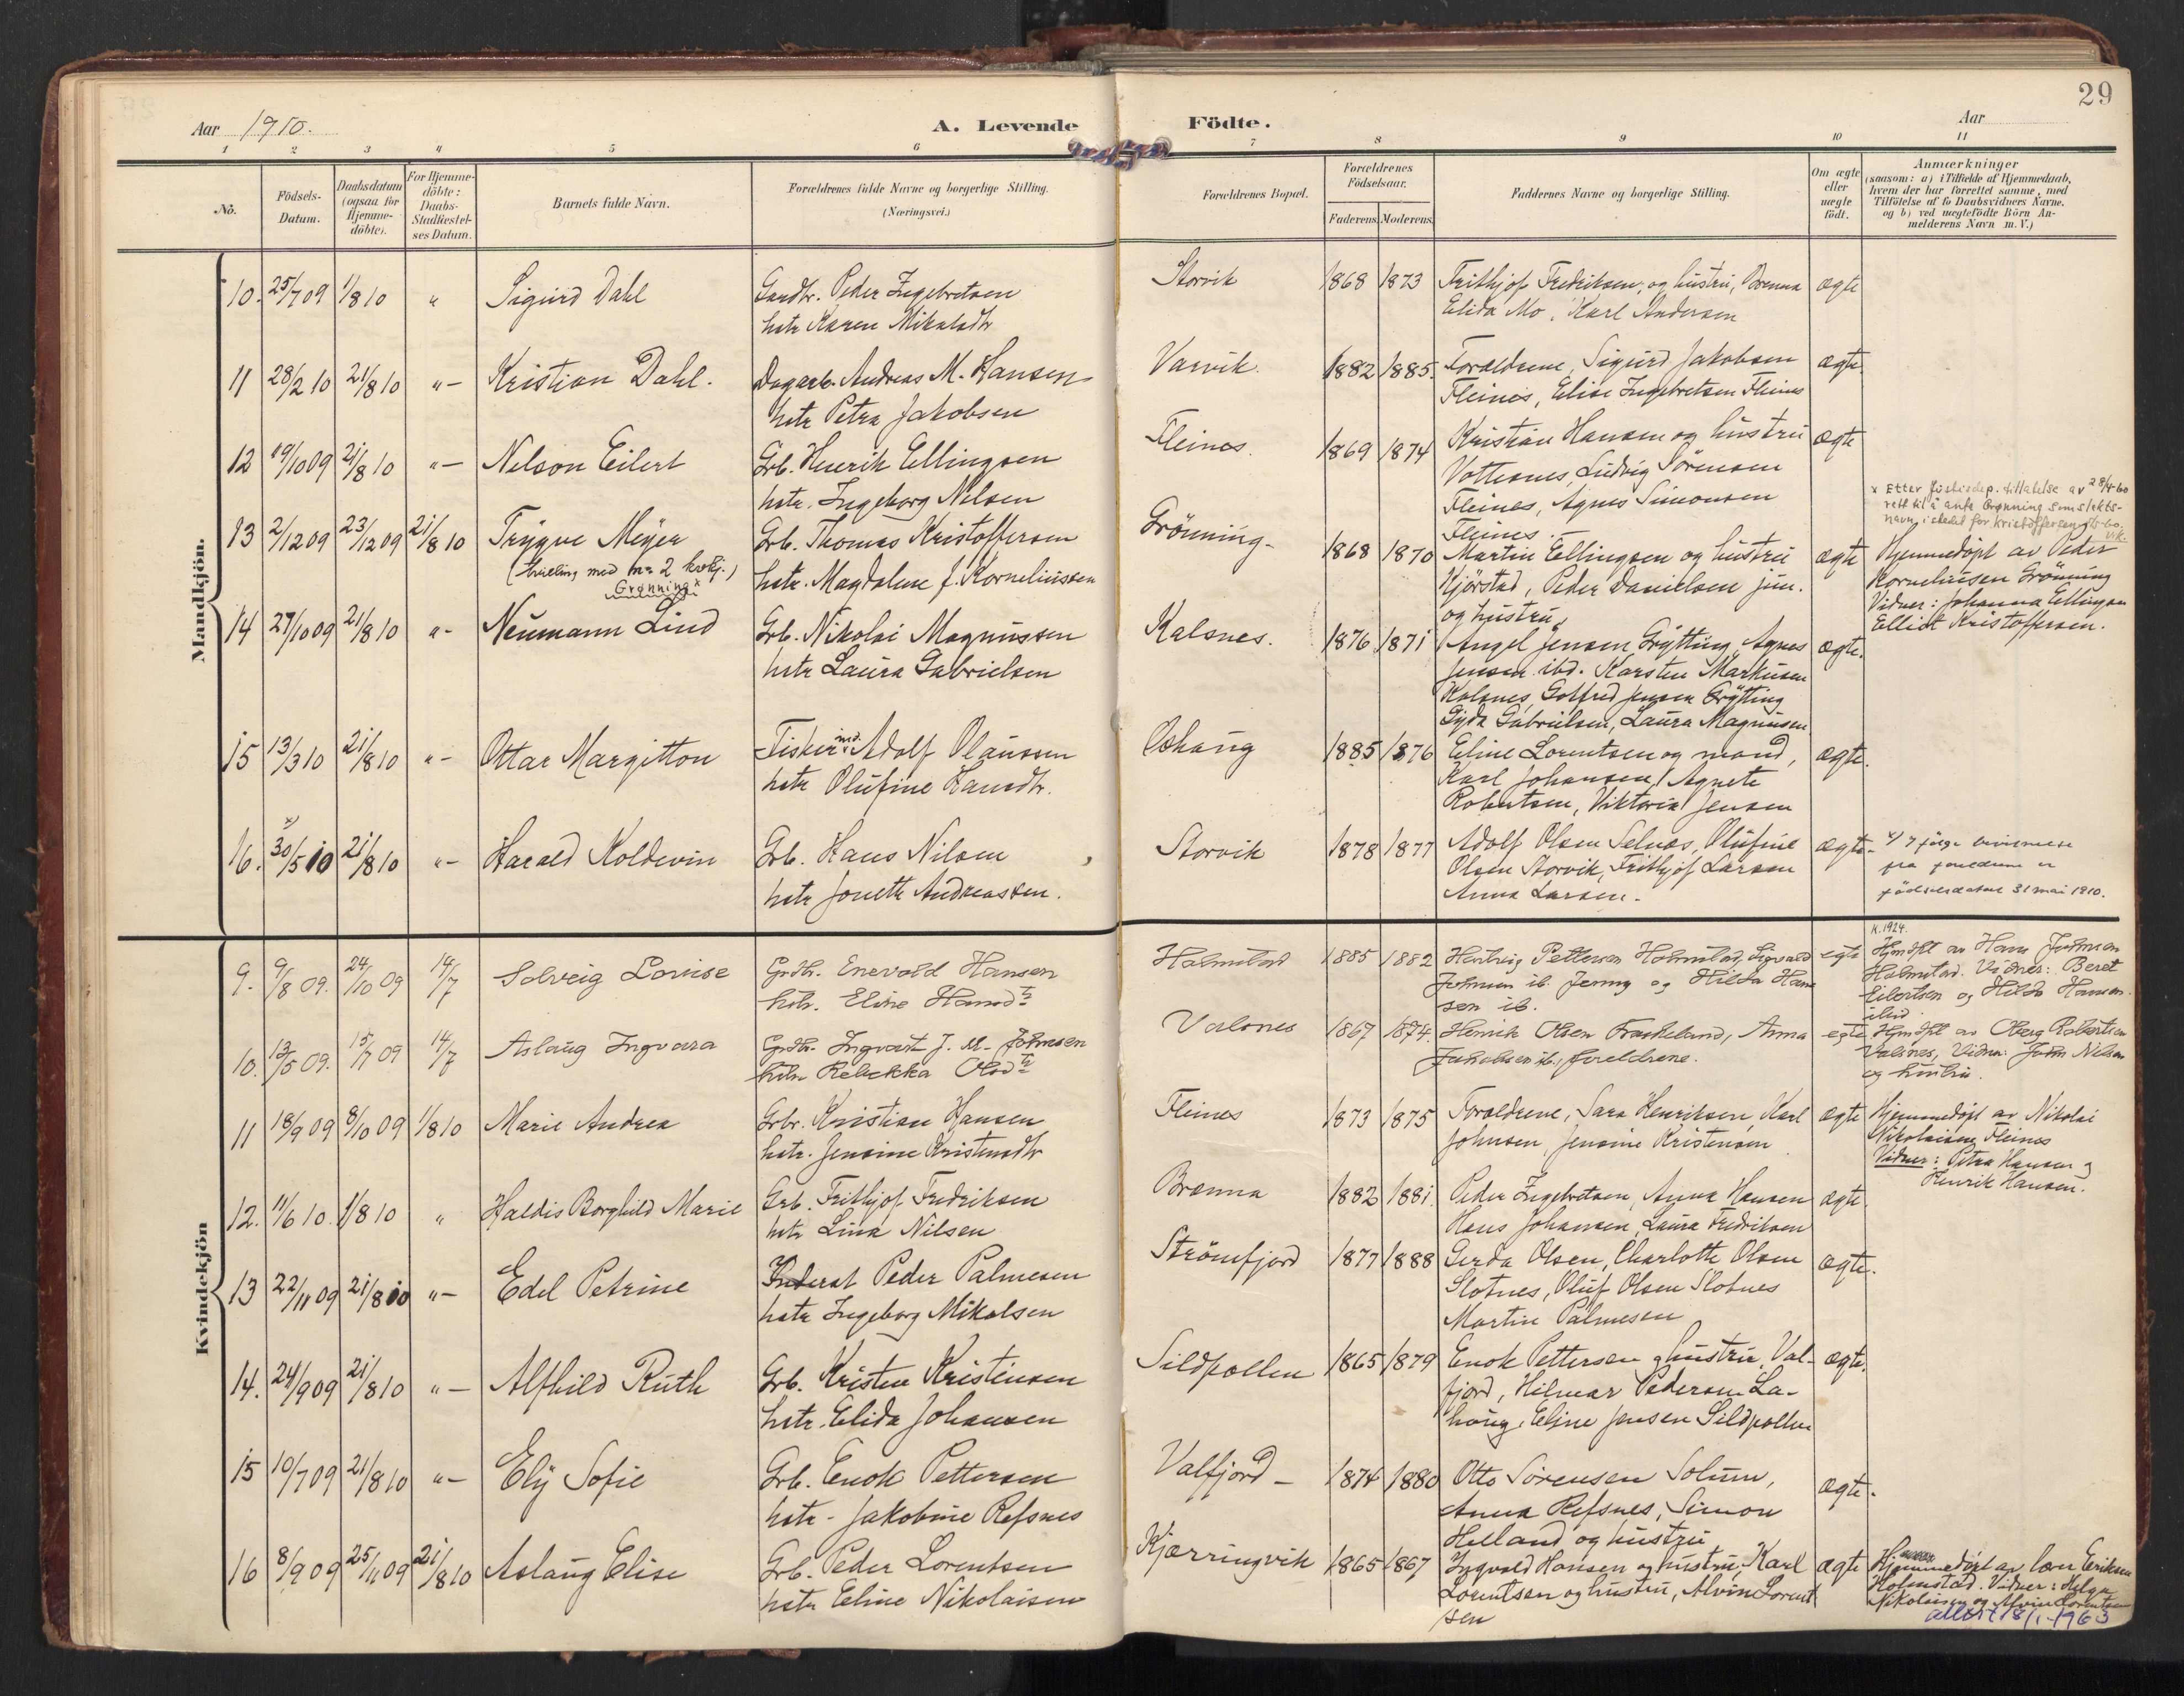 29
Aar 1910.
A. Levende Födte.
Aar
1 2 3 4 5 6 7 8 9 10 11
No.
Födsels-
Datum.
Daabsdatum
(ogsaa for
Hjemme-
döbte).
For Hjemme-
döbte:
Daabs-
Stadfæstel-
ses Datum.
Barnets fulde Navn.
Forældrenes fulde Navne og borgerlige Stilling.
(Næringsvei.)
Forældrenes Bopæl.
Forældrenes
Födselsaar.
Faderens Moderens
Faddernes Navne og borgerlige Stilling.
Om ægte
eller
uægte
födt.
Anmærkninger
(saasom: a) i Tilfælde af Hjemmedaab,
hvem der har forrettet samme, med
Tilföielse af to Daabsvidners Navne.
og b) ved uægtefödte Börn An-
melderens Navn m. V.)
Mandkjön.
10. 25/7 09 1/8 10 " Sigurd Dahl Gaardbr. Peder Ingebretsen Storvik 1868 1873 Frithjof Fredriksen, og hustru, Brenna ægte
hstr Karen Mikalsdtr Elida Mo, Karl Andersen
11 28/2 10 21/8 10 "- Kristian Dahl. Dagarb. Andreas M. Hansen Varvik. 1882 1885. Forældrene, Sigurd Jakobsen ægte
hstr Petra Jakobsen Fleines, Elise Ingebretsen Fleines
12 19/10 09 21/8 10 "- Nelson Eilert Grb. Henrik Ellingsen Fleines. 1869 1874 Kristian Hansen og hustru ægte
hstr. Ingeborg Nelsen Vottesnes, Ludvig Sörensen
Fleines, Agnes Simonsen
Fleines.
x Etter justisdep. tillatelse av 28/4-60
rett til å anta Grønning som slekts-
navn i stedet for Kristoffersen
13 2/12 09 23/12 09 21/8 10 Trygve Meyer Grb. Thomas Kristoffersen Grönning- 1868 1870 Martin Ellingsen og hustru ægte Hjemmedöpt av Peder
(tvilling med nr 2 kvkj.) hstr. Magdalene f. Korneliussen Hjörstad, Peder Danielsen jun. Korneliusen Grönning
Grønning x og hustru. Vidner: Johanna Ellingsen
Elliot Kristoffersen.
14 27/10 09 21/8 10 "- Neumann Lind Grb. Nikolai Magnussen Kalsnes. 1876 1871 Angel Jensen Grytting, Agnes ægte.
hstr Laura Gabrielsen Jensen ibd. Karsten Markusen
Kalsnes, Gotfred Jensen Grytting
Gyda Gabrielsen, Laura Magnussen
15 13/3 10 21/8 10 "- Ottar Margitton Fisker Adolf Olaussen 1885 1876 Eline Lorentsen og mand, ægte.
hstr Olufine Hansdtr. Karl Johansen, Agnete
Robertsen, Viktoria Jensen
16. x 30/5 10 21/8 10 "- Harald Koldevin Grb. Hans Nilsen Storvik 1878 1877 Adolf Olsen Selnæs, Olufine ægte. x/ I følge
hstr Jonette Andreassen. Olsen Storvik, Frithjof Larsen fra foreldrene er
Anna Larsen. fødselsdatoen 31 mai 1910.
Kvindekjön
9. 9/8 09. 24/10 09 14/7 Solveig Lovise Grdbr. Enevold Hansen Holmstad 1885 1882 Hedvig Pettersen Holmstad, Sigvald egte Hjmdpt av Hans Johnsen
hstr. Eline Hansdtr Johnsen ib. Jenny og Hilda Han- Holmstad. Vidner: Beret
sen ib. Eilertsen og Hilda Hansen
ibid.
10. 13/5 09. 15/7 09 14/7 Aslaug Ingvara Grdbr. Ingvart J. M. Johnsen Valsnes 1867 1874. Henrik Olsen Frøskeland, Anna egte Hjmdpt av Oberg Robertsen
hstr Rebekka Olsdtr Jakobsen ib., foreldrene. Valsnes, Vidner: John Nilsen
og hustru.
11 18/9 09 8/10 09 1/8 10 Marie Andrea Grbr. Kristian Hansen Fleines 1873 1875 Forældrene, Sara Henriksen, Karl ægte Hjemmedöpt av Nikolai
hstr. Jensine Kristensdtr Johnsen, Jensine Kristensen Nikolaisen Fleines
Vidner: Petra Hansen og
Henrik Hansen.
12. 11/6 10. 1/8 10 " Haldis Borghild Marie Grb. Frithjof Fredriksen Brænna 1882 1881. Peder Ingebretsen, Anna Hansen ægte.
hstr Lina Nilsen Hans Johansen, Laura Fredriksen
13 22/11 09 21/8 10 "- Edel Petrine Peder Palmesen Strömfjord 1877 1888 Gerda Olsen, Charlotte Olsen ægte.
hstr Ingeborg Mikalsen Slotnes, Oluf Olsen Slotnes
Martin Palmesen
14. 24/9 09 21/8 10 "- Alfhild Ruth Grb. Kristen Kristensen Sildpollen 1865 1879 Enok Pettersen og hustru, Val- ægte.
hstr. Elida Johansen fjord, Hilmar Pedersen La-
haug, Eline Jensen Sildpollen
15 10/7 09 21/8 10 "- Ely Sofie Grb. Enok Pettersen Valfjord- 1874 1880 Otto Sörensen Solum, ægte.
hstr- Jakobine Refsnes Anna Refsnes, Simon
Helland og hustru
16 8/9 09 25/11 09 21/8 10 Aslaug Elise Grb. Peder Lorentsen Kjærringvik 1865 1867 Ingvald Hansen og hustru, Karl ægte Hjemmedöpt av Eriksen
hstr Eline Nikolaisen Lorentsen og hustru, Alvin Lorent Holmstad. Vidner: Helga
sen Nikolaisen og Alvin Lorentsen
attest 18/1-1963